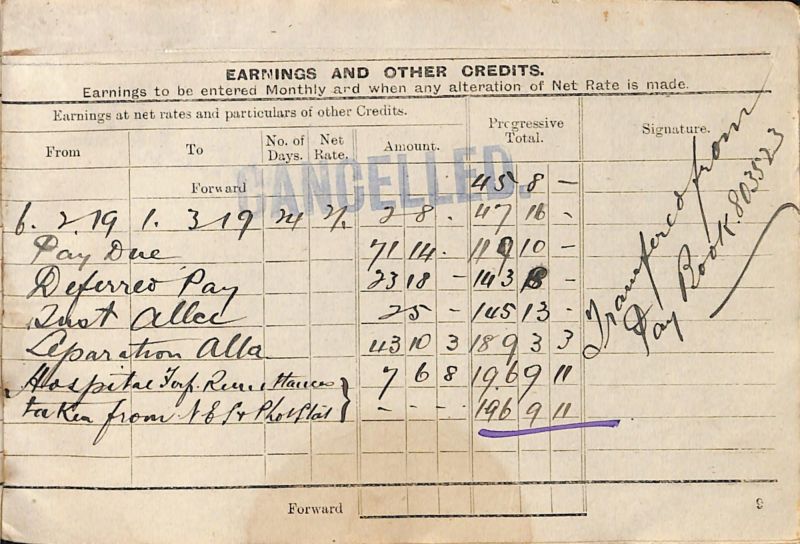 EARNINGS AND OTHER CREDITS.
Earnings to be entered Monthly and when any alteration of Net Rate is made.
Earnings at net rates and particulars of other Credits.
Progressive Total.
Signature.
From To No. of Days. Net Rate. Amount.
CANCELLED.
Forward 45 8 -
6. 2. 19 1. 3 19 24 2/. 2 8 . 47 16 -
Pay Due 71 14 . 119 10 -
Deferred Pay 23 18 - 143 8 -
Allce 2 5 - 145 13 -
Separation Alla 43 10 3 189 3 3
Hospital Remittances 7 6 8 196 9 11
taken from - - - 196 9 11
Transfered from
Pay Book. 803523
Forward
9